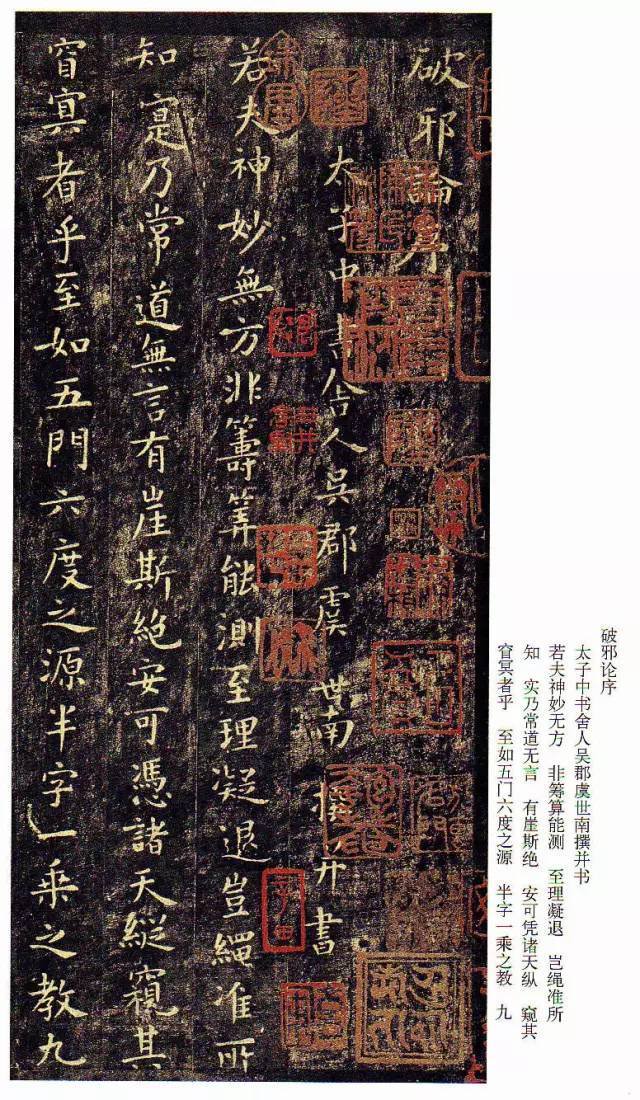 破邪論序
太子中書舍人吳郡虞世南撰并書
若夫神妙無方非籌筭能測至理凝退豈繩准所
知寔乃常道無言有崖斯絶安可憑諸天縱窺其
窅冥者乎至如五門六度之源半字一乘之教九
破邪论序
太子中书舍人吴郡虞世南撰并书
若夫神妙无方 非筹算能测 至理凝退 岂绳准所
知 实乃常道无言 有崖斯绝 安可凭诸天纵 窥其
窅冥者乎 至如五门六度之源 半字一乘之教 九